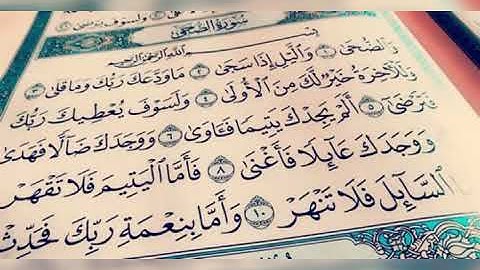 سُورَةُ الضُّحَى
بِسْمِ اللَّهِ الرَّحْمَٰنِ الرَّحِيمِ
وَالضُّحَىٰ ١ وَاللَّيْلِ إِذَا سَجَىٰ ٢ مَا وَدَّعَكَ رَبُّكَ وَمَا قَلَىٰ ٣
وَلَلْآخِرَةُ خَيْرٌ لَّكَ مِنَ الْأُولَىٰ ٤ وَلَسَوْفَ يُعْطِيكَ رَبُّكَ
فَتَرْضَىٰ ٥ أَلَمْ يَجِدْكَ يَتِيمًا فَـَٔاوَىٰ ٦ وَوَجَدَكَ ضَآلًّا فَهَدَىٰ
وَوَجَدَكَ عَآئِلًا فَأَغْنَىٰ ٨ فَأَمَّا الْيَتِيمَ فَلَا تَقْهَرْ
السَّآئِلَ فَلَا تَنْهَرْ ١٠ وَأَمَّا بِنِعْمَةِ رَبِّكَ فَحَدِّثْ